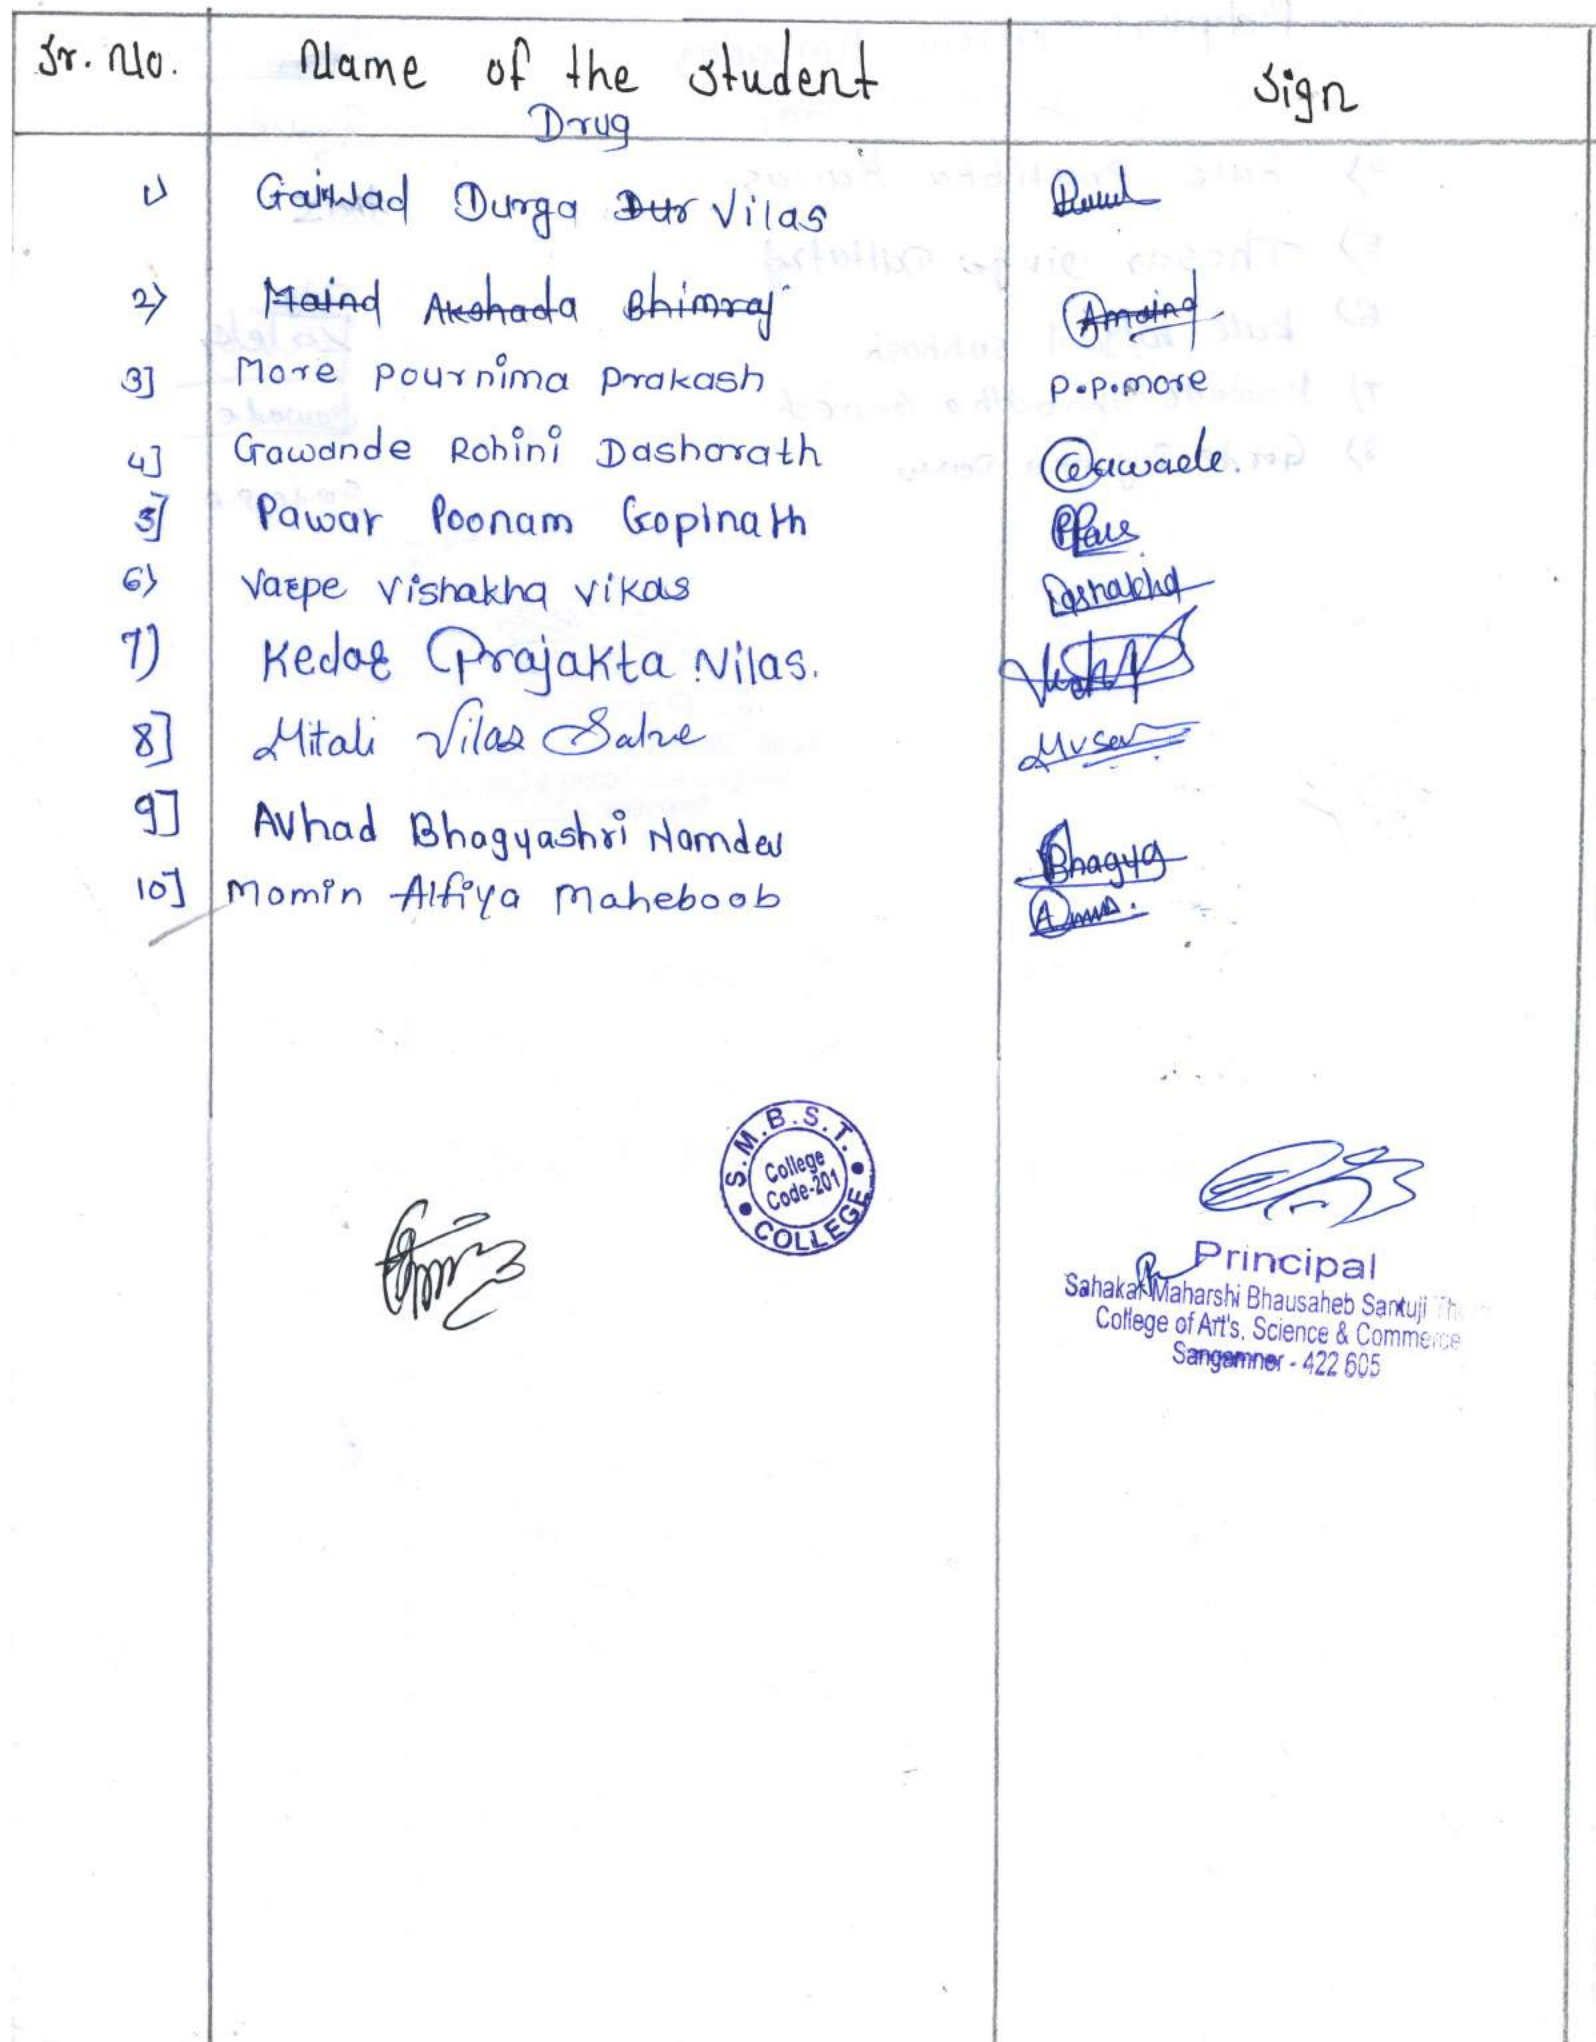 Sr. No. Name of the student Sign
Drug
1) Gaikwad Durga Dur Vilas
2) Maind Akshada Bhimraj Amaind
3] More Pournima Prakash P.P.more
4] Gawande Rohini Dasharath Gawade.
5] Pawar Poonam Gopinath
6) Varpe Vishakha Vikas Vishakha
7) Kedar Prajakta Vilas.
8] Mitali Vilas Salve
9] Avhad Bhagyashri Namdev Bhagya
10] Momin Alfiya Maheboob
S.M.B.S.T.
College
Code-201
COLLEGE
Principal
Sahakar Maharshi Bhausaheb Santuji Thorat
College of Art's, Science & Commerce
Sangamner - 422 605